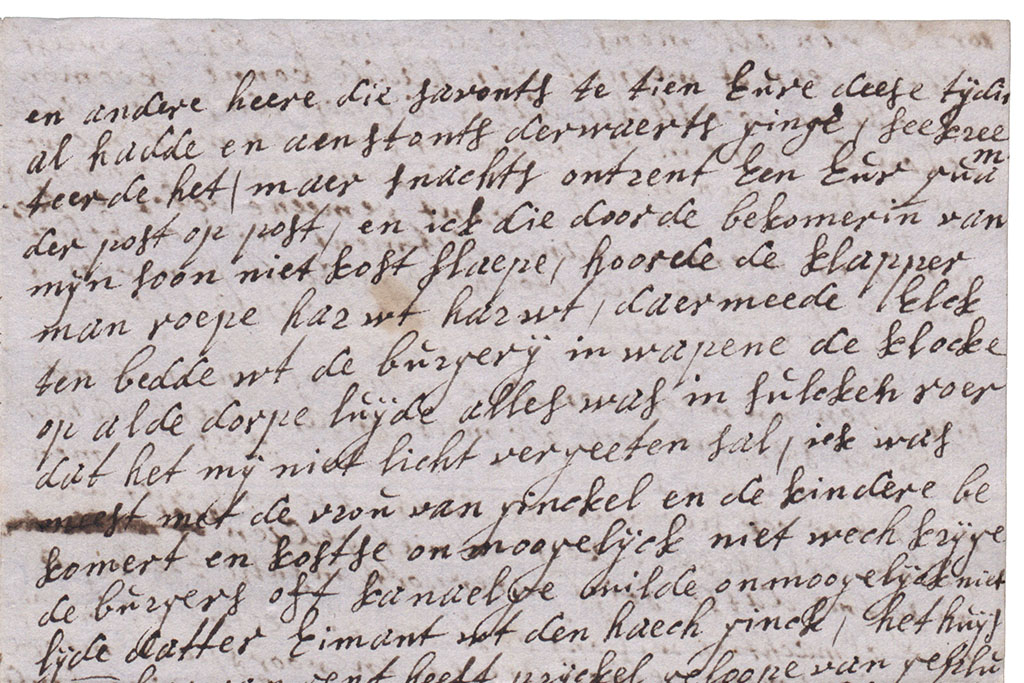 en andere heere die savonts te tien Eure deese tijdin
al hadde en aenstonts derwaerts ginge, seekree
teerde het, maer snachts ontrent Een Eur quam
der post op post, en ick die door de bekomerin van
mijn soon niet kost slaepe, hoorde de klapper
man roepe harwt harwt, daermeede Elck
ten bedde wt de burgerij in wapene de klocke
op al de dorpe luijde alles was in sulcken roer
dat het mij niet licht vergeeten sal, ick was
meest met de vrou van ginckel en de kindere be
komert en kostse onmoogelijck niet wech krijge
de burgers off kanaelge wilde onmoogelijck niet
lijde datter Eimant wt den haech ginck, het huijs
van heeft prijckel geloope van geplu